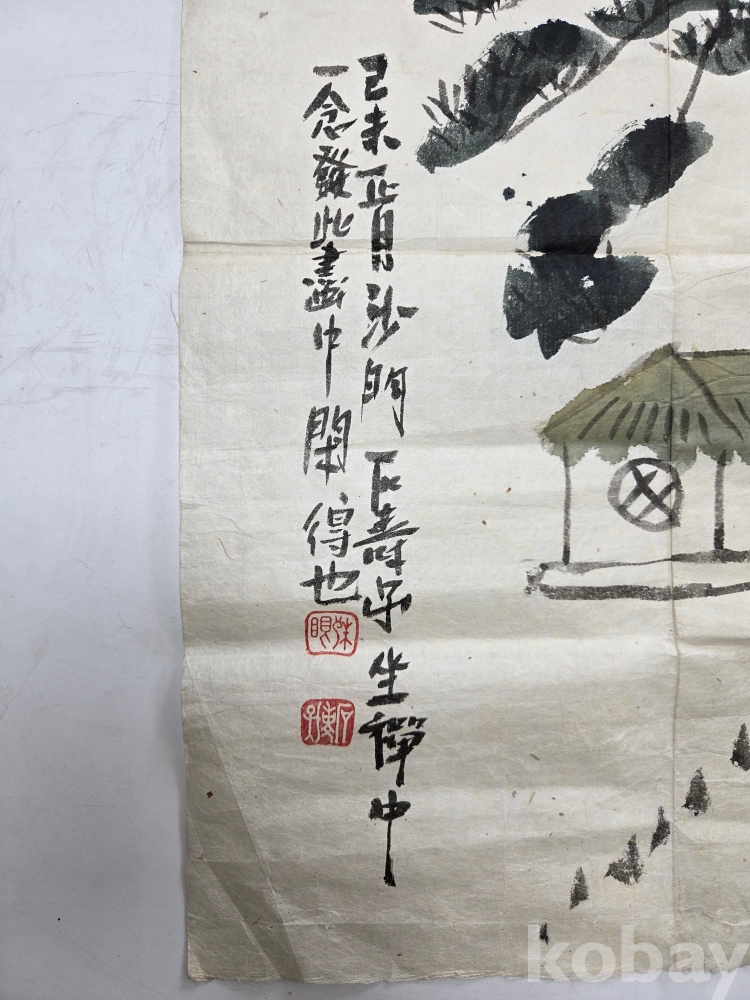 己未正月沙門石壽子坐禪中
一念發此畫中閑得也
kobay